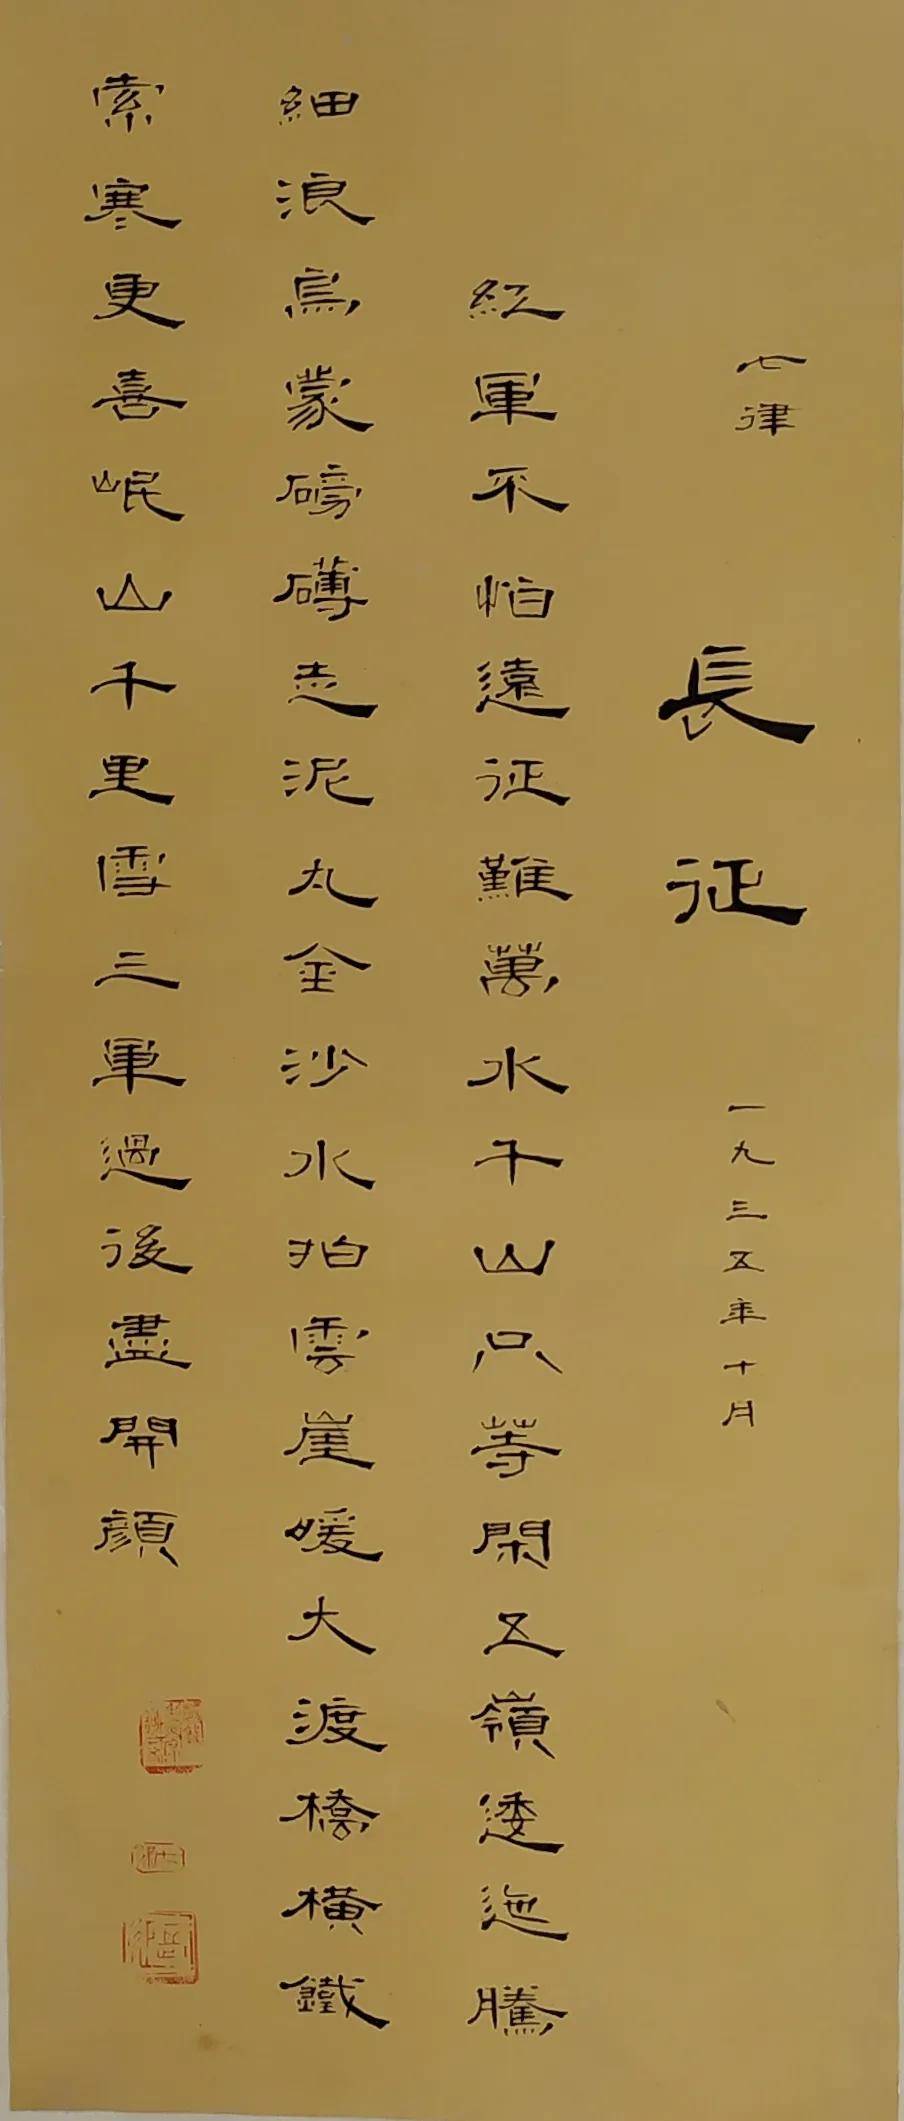 七律
長征
一九三五年十月
紅軍不怕遠征難萬水千山只等閑五嶺逶迤騰
細浪烏蒙磅礴走泥丸金沙水拍雲崖暖大渡橋橫鐵
索寒更喜岷山千里雪三軍過後盡開顔